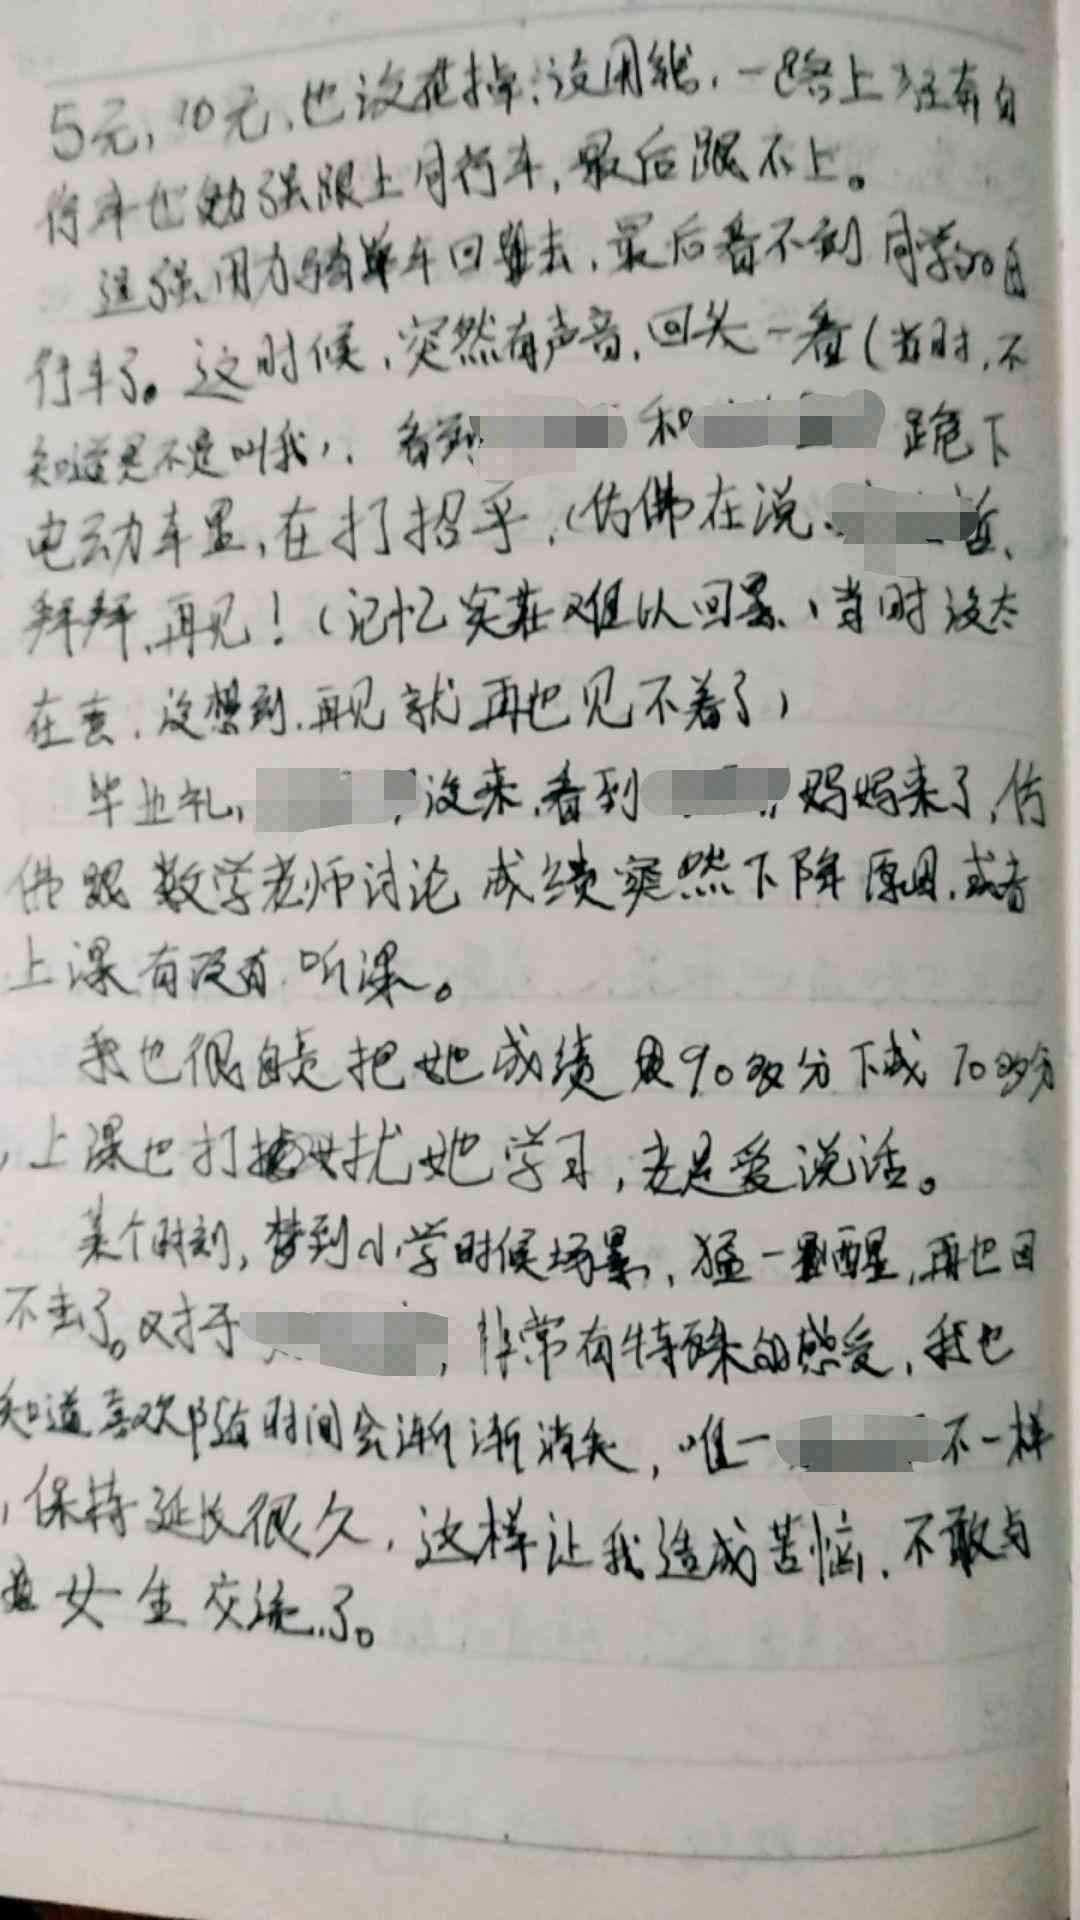 5元,10元,也没花掉,没用钱,一路上 自
行车也勉强跟上同行车,最后跟不上。
强用力骑单车回去,最后看不到同学的自
行车了。这时候,突然有声音,回头一看(当时,不
知道是不是叫我),看到 和 跪下
电动车里,在打招乎,(仿佛在说,
拜拜,再见!(记忆实在难以回,当时没太
在意,没想到,再见就再也见不着了)
毕业礼, 没来,看到 妈妈来了,仿
佛跟数学老师讨论成绩突然下降原因,或者
上课有没有听课。
我也很自责把她成绩 90多分下成70多分
,上课也打扰她学习,老是爱说话。
某个时刻,梦到小学时候场景,猛一醒,再也回
不去了。对于 ,非常有特殊的感受,我也
知道喜欢随时间会渐渐消失,唯一 不一样
,保持延长很久,这样让我造成苦恼,不敢与
女生交流了。